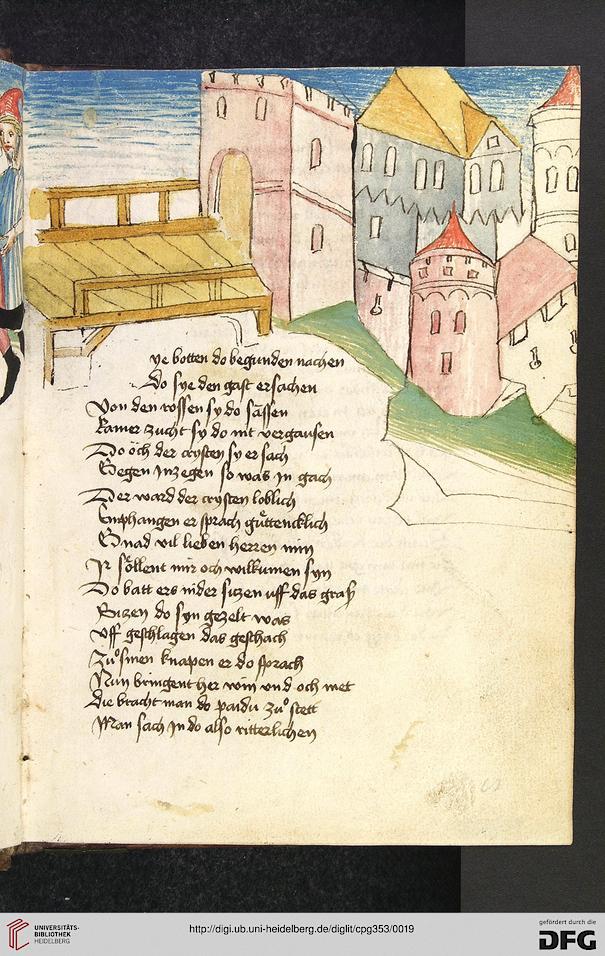 ye botten do begunden nachen
Do sye den gast ersachen
Von den rossen sy do sässen
kainer zucht sy do nit vergaußen
Do öch der crysten sy ersach
Gegen In zegen so was in gach
Der ward der crysten loblich
Emphangen er sprach güttencklich
Gnad vil lieben herren min
Ir söllent mir och wilkumen syn
Do batt er s nider sitzen uff das graß
Sitzen do syn gezelt was
Uff geschlagen das geschach
Zuͦ sinen knapen er do sprach
Nun bringent her win vnd och met
die bracht man do paidu zuͦ stett
Man sach In do also ritterlichen
UNIVERSITÄTS-
BIBLIOTHEK
HEIDELBERG
http://digi.ub.uni-heidelberg.de/diglit/cpg353/0019
gefördert durch die
DFG